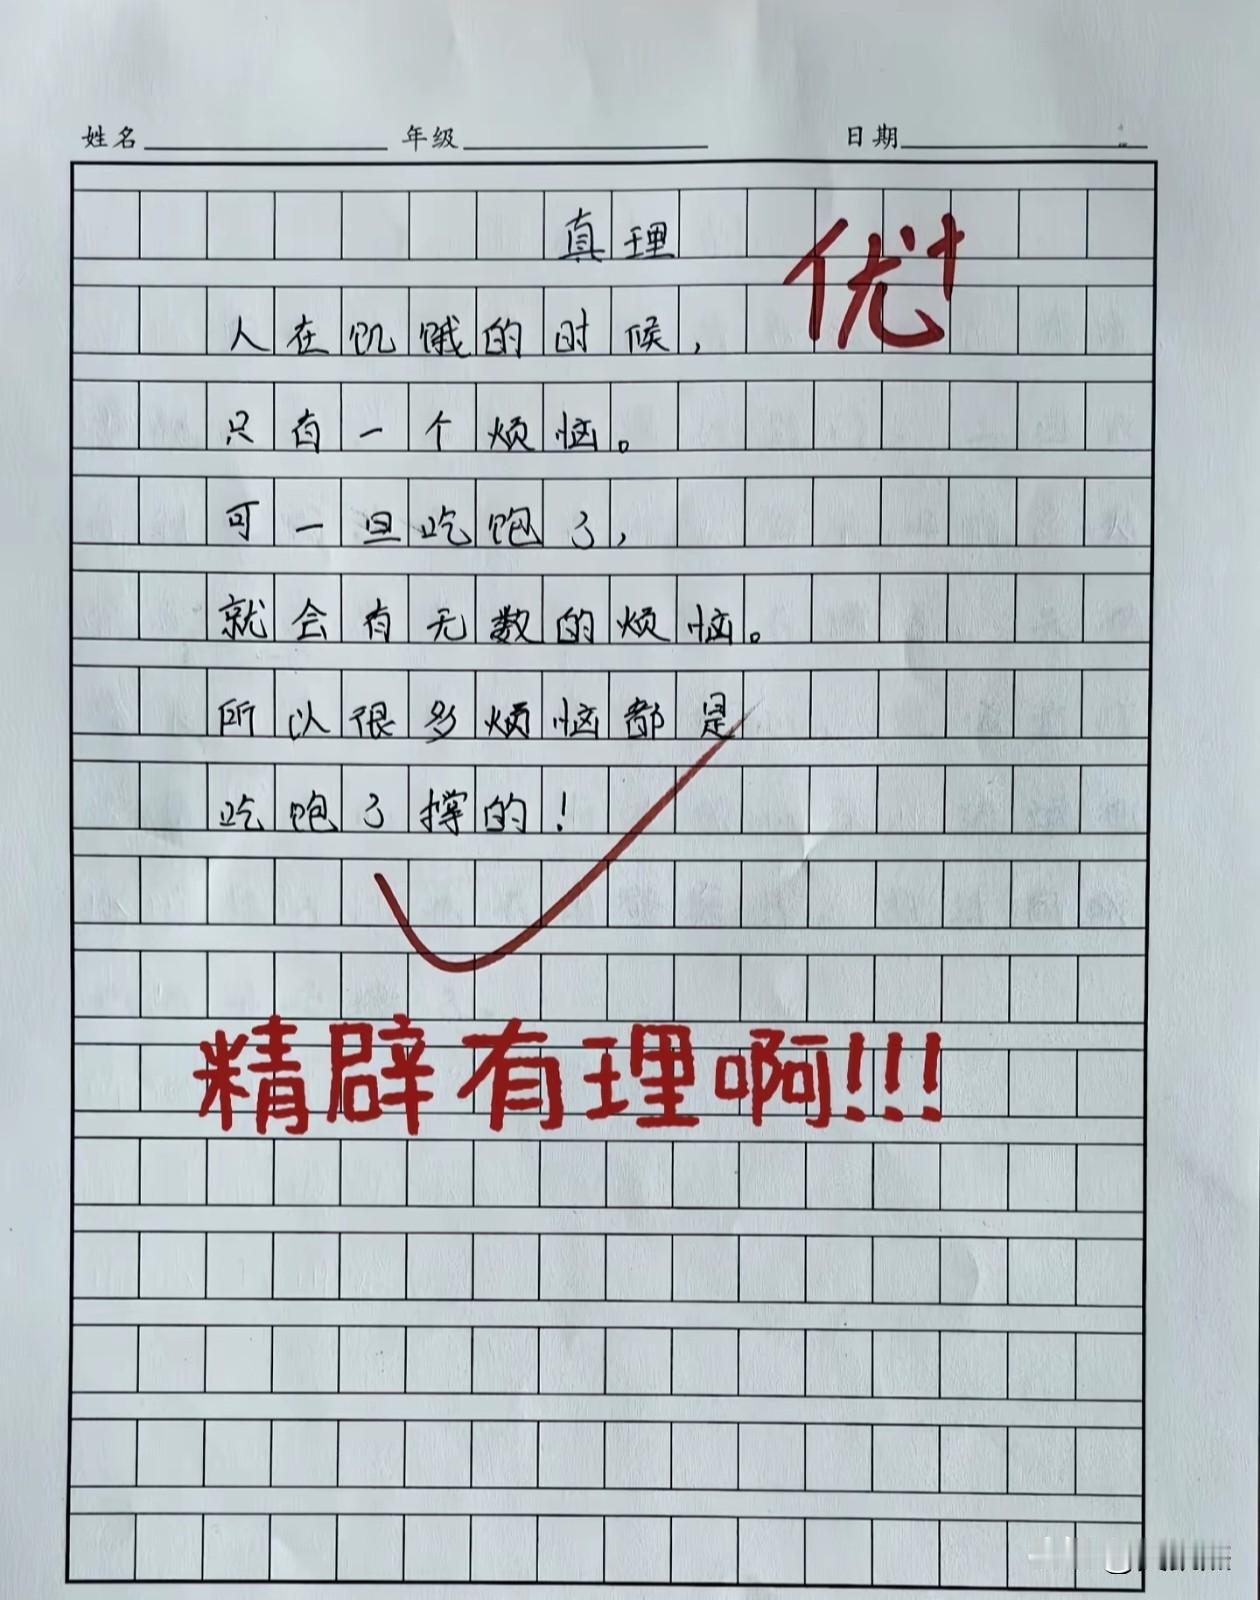 姓名 年级 日期
真理
优+
人在饥饿的时候，
只有一个烦恼。
可一旦吃饱了，
就会有无数的烦恼。
所以很多烦恼都是
吃饱了撑的！
精辟有理啊!!!